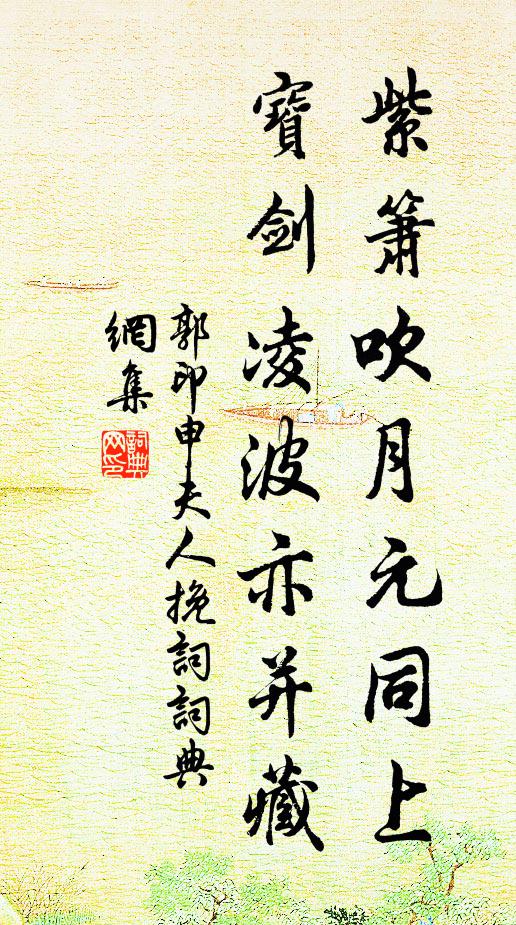 紫簫吹月元同上
寶劍凌波亦并藏
郭印申夫人挽詞詞典
網集
詞典
网印